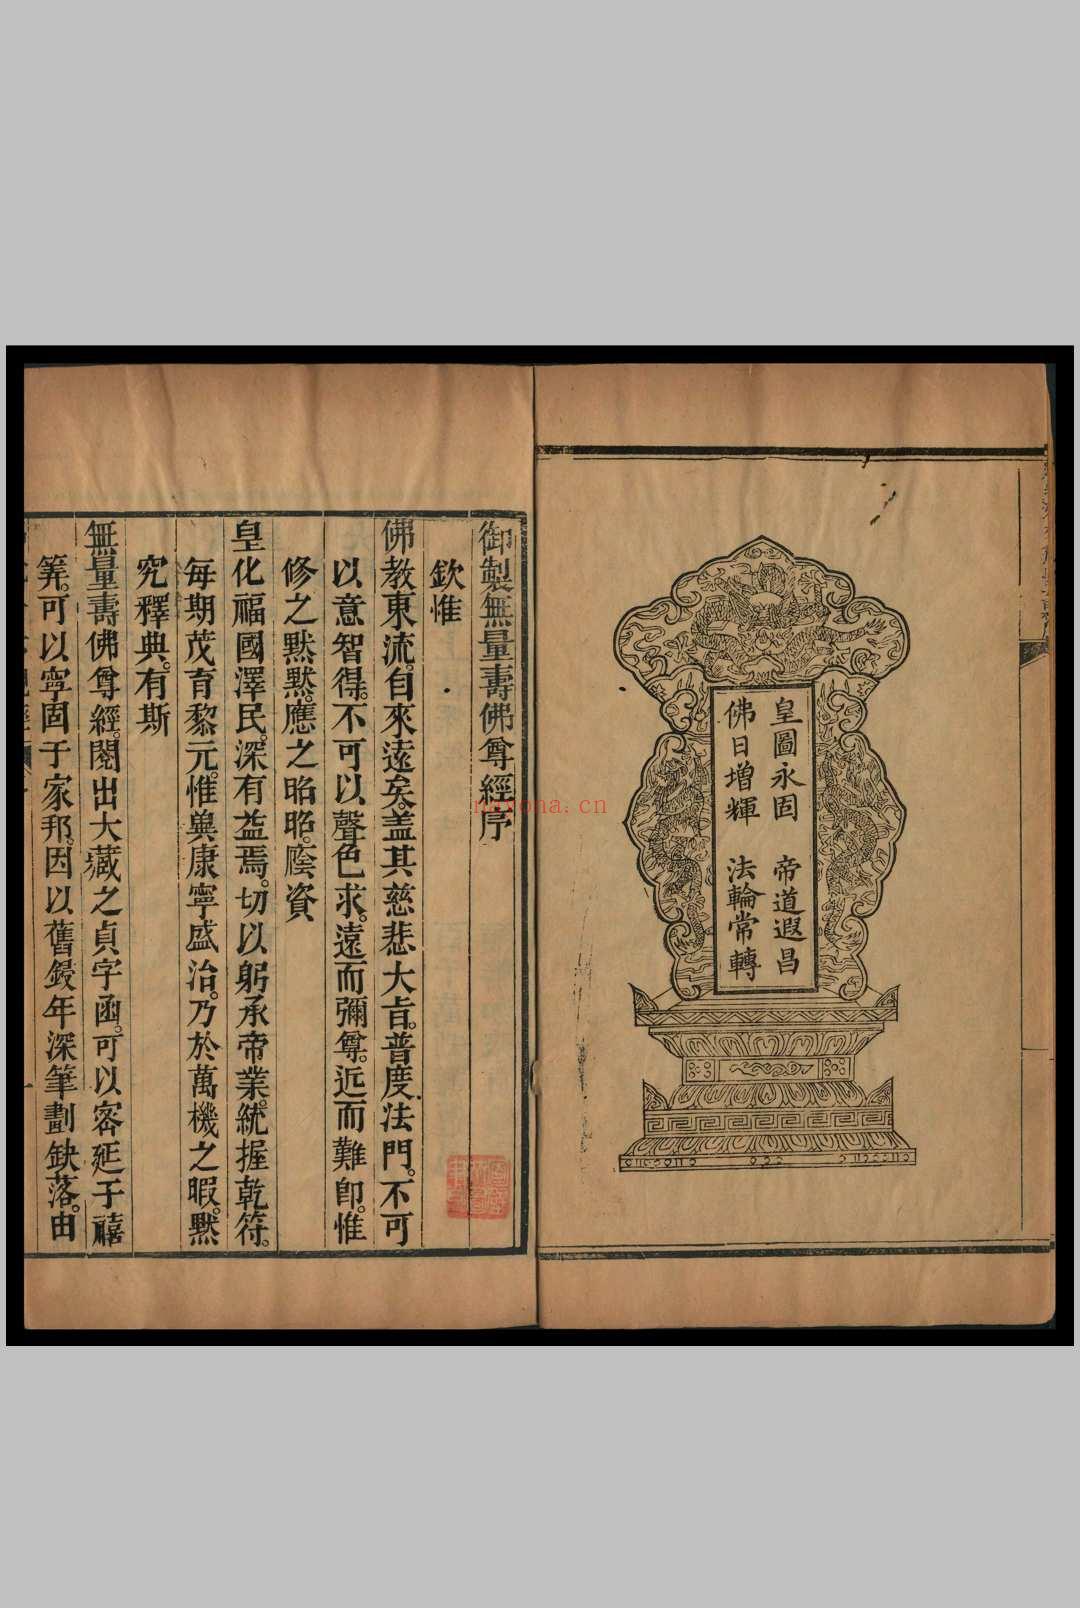 皇圖永固　帝道遐昌
佛日增輝　法輪常轉
御製無量壽佛尊經序
欽惟
佛教東流。自來遠矣。蓋其慈悲大旨。普度法門。不可
以意智得。不可以聲色求。遠而彌尊。近而難卽。惟
修之默默。應之昭昭。廕資
皇化福國澤民。深有益焉。切以躬承帝業。統握乾符。
每期茂育黎元。惟兾康寧盛治。乃於萬機之暇。默
究釋典。有斯
無量壽佛尊經。閱出大藏之貞字函。可以容延于禧
筭。可以寧固于家邦。因以舊鋟年深筆劃缺落。由
nayona.cn